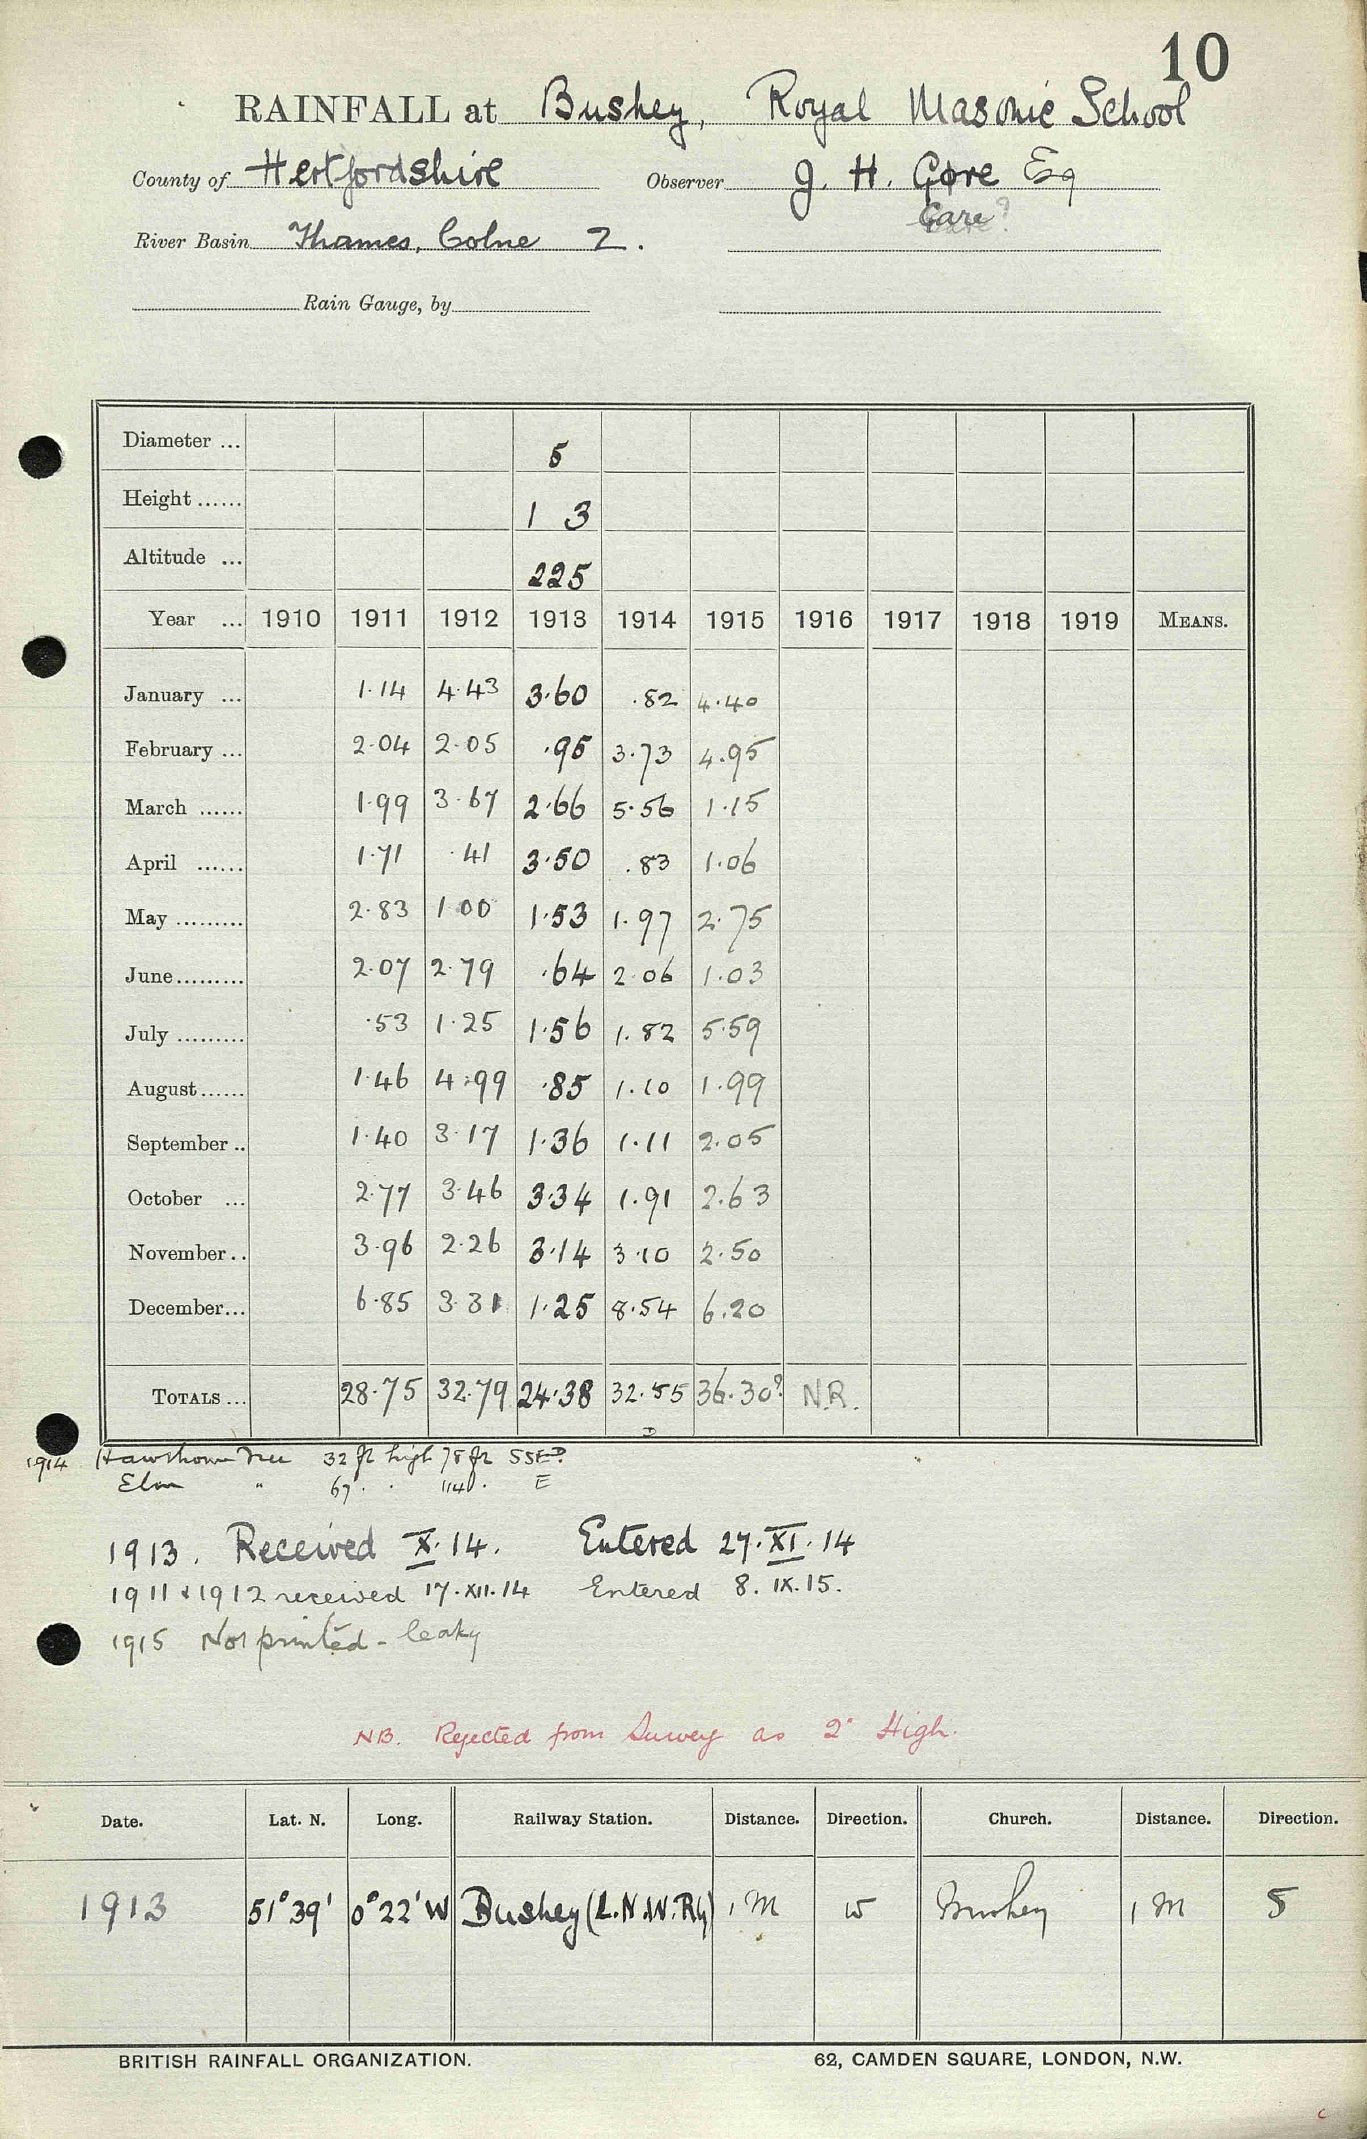 10
RAINFALL at Bushey, Royal Masonic School
County of Hertfordshire Observer J. H. Gore Esq
Gare?
River Basin Thames, Colne 2.
Rain Gauge, by
Diameter ... 5
Height ...... 1 3
Altitude ... 225
Year ... 1910 1911 1912 1913 1914 1915 1916 1917 1918 1919 MEANS.
January ... 1.14 4.43 3.60 .82 4.40
February ... 2.04 2.05 .95 3.73 4.95
March ...... 1.99 3.67 2.66 5.56 1.15
April ...... 1.71 .41 3.50 .83 1.06
May ......... 2.83 1.00 1.53 1.97 2.75
June ......... 2.07 2.79 .64 2.06 1.03
July ......... .53 1.25 1.56 1.82 5.59
August ...... 1.46 4.99 .85 1.10 1.99
September .. 1.40 3.17 1.36 1.11 2.05
October ... 2.77 3.46 3.34 1.91 2.63
November .. 3.96 2.26 3.14 3.10 2.50
December ... 6.85 3.31 1.25 8.54 6.20
TOTALS ... 28.75 32.79 24.38 32.55 36.30? N.R.
1914 Hawthorn Tree 32 ft high 78 ft SSE?
Elm " 67 . . 114 . E
1913. Received X.14. Entered 27.XI.14
1911 & 1912 received 17.XII.14 Entered 8. IX.15.
1915 Not printed - leaky
NB. Rejected from Survey as 2" High.
Date. Lat. N. Long. Railway Station. Distance. Direction. Church. Distance. Direction.
1913 51°39' 0°22'W Bushey (L.N.W.Ry) 1 M W Bushey 1 M S
BRITISH RAINFALL ORGANIZATION. 62, CAMDEN SQUARE, LONDON, N.W.